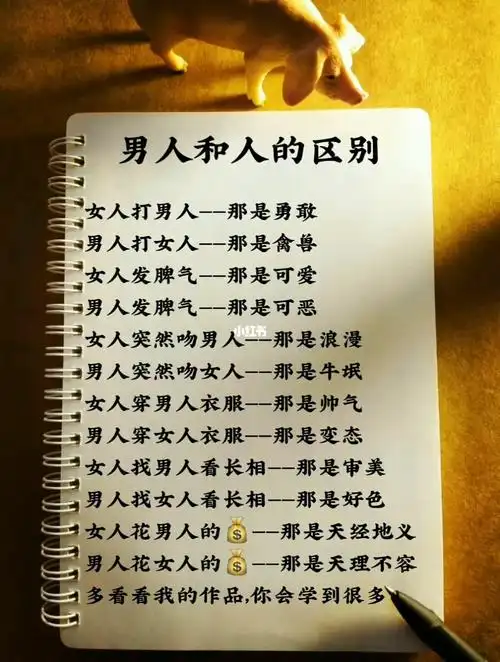 男人和人的区别
女人打男人——那是勇敢
男人打女人——那是禽兽
女人发脾气——那是可爱
男人发脾气——那是可恶
小红书
女人突然吻男人——那是浪漫
男人突然吻女人——那是牛氓
女人穿男人衣服——那是帅气
男人穿女人衣服——那是变态
女人找男人看长相——那是审美
男人找女人看长相——那是好色
女人花男人的💰——那是天经地义
男人花女人的💰——那是天理不容
多看看我的作品,你会学到很多